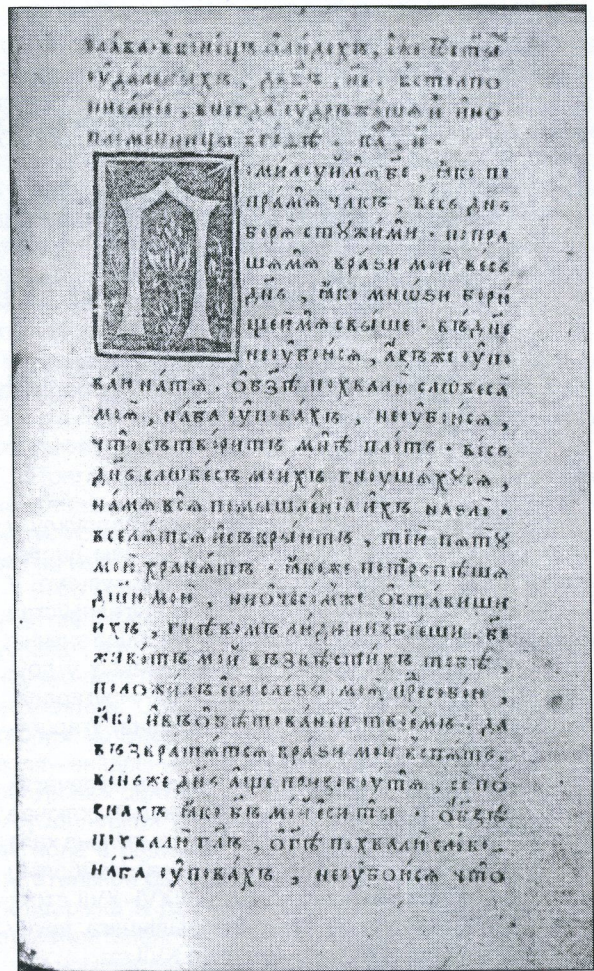 слава · в̾конець ѡ҆людехъ, и҆же ѿст҃ы
оу҆даленыхъ, дв҃дꙋ, не встолпо
писанїе, внегда оу҆дръжашѧ и҆ ино
племенницы вгеѳѣ · ѱа, н҃ ·
омилоуи҆мѧ бж҃е, ꙗ҆ко по
пра́мѧ чл҃къ, весь дн҃ь
борѧ стꙋжи́ми · попра
шамѧ врази мои̑ весь
дн҃ь, ꙗ҆ко мнѡѕи борю̀
щеи҆мѧ свыше · въдн҃е
неоубоюсѧ, а҆зъже оу҆по
ваю натѧ · ѡ҆бз҃ѣ похвалю̀ словеса̀
моа̀, наб҃а оу҆повахъ, неоубоюсѧ,
что̀ сътворитъ мн҃ѣ плоть · весь
дн҃ь словесъ мои́хъ гноушахꙋсѧ,
намѧ всѧ помышленїа и҆хъ назло̀ ·
вселѧтсѧ и҆съкрыютъ, тїи̑ пѧтꙋ
мою̀ хранѧтъ · ꙗ҆коже потерпѣша
дш҃ю мою̀, ниѡчесо́мже ѡ҆ставиши
и҆хъ, гнѣвомъ люди низведеши · бж҃е
живо́тъ мои̑ възвѣсти́хъ тобѣ̀,
положи́лъ є҆си слезы моа̀ пре́дсобою,
ꙗ҆ко и҆въѡ҆бѣтованїи̑ твоемъ · да
възвратѧтсѧ врази мои̑ вспѧть ·
воньже дн҃ь а҆ще призовоутѧ, се по
знахъ ꙗ҆ко бг҃ъ мо́и є҆си ты̀ · ѡ҆бз҃ѣ
похвалю̀ гл҃ъ, ѡ҆г҃ѣ похвалю̀ слово
наб҃а оу҆повахъ, неоубоюсѧ что̀